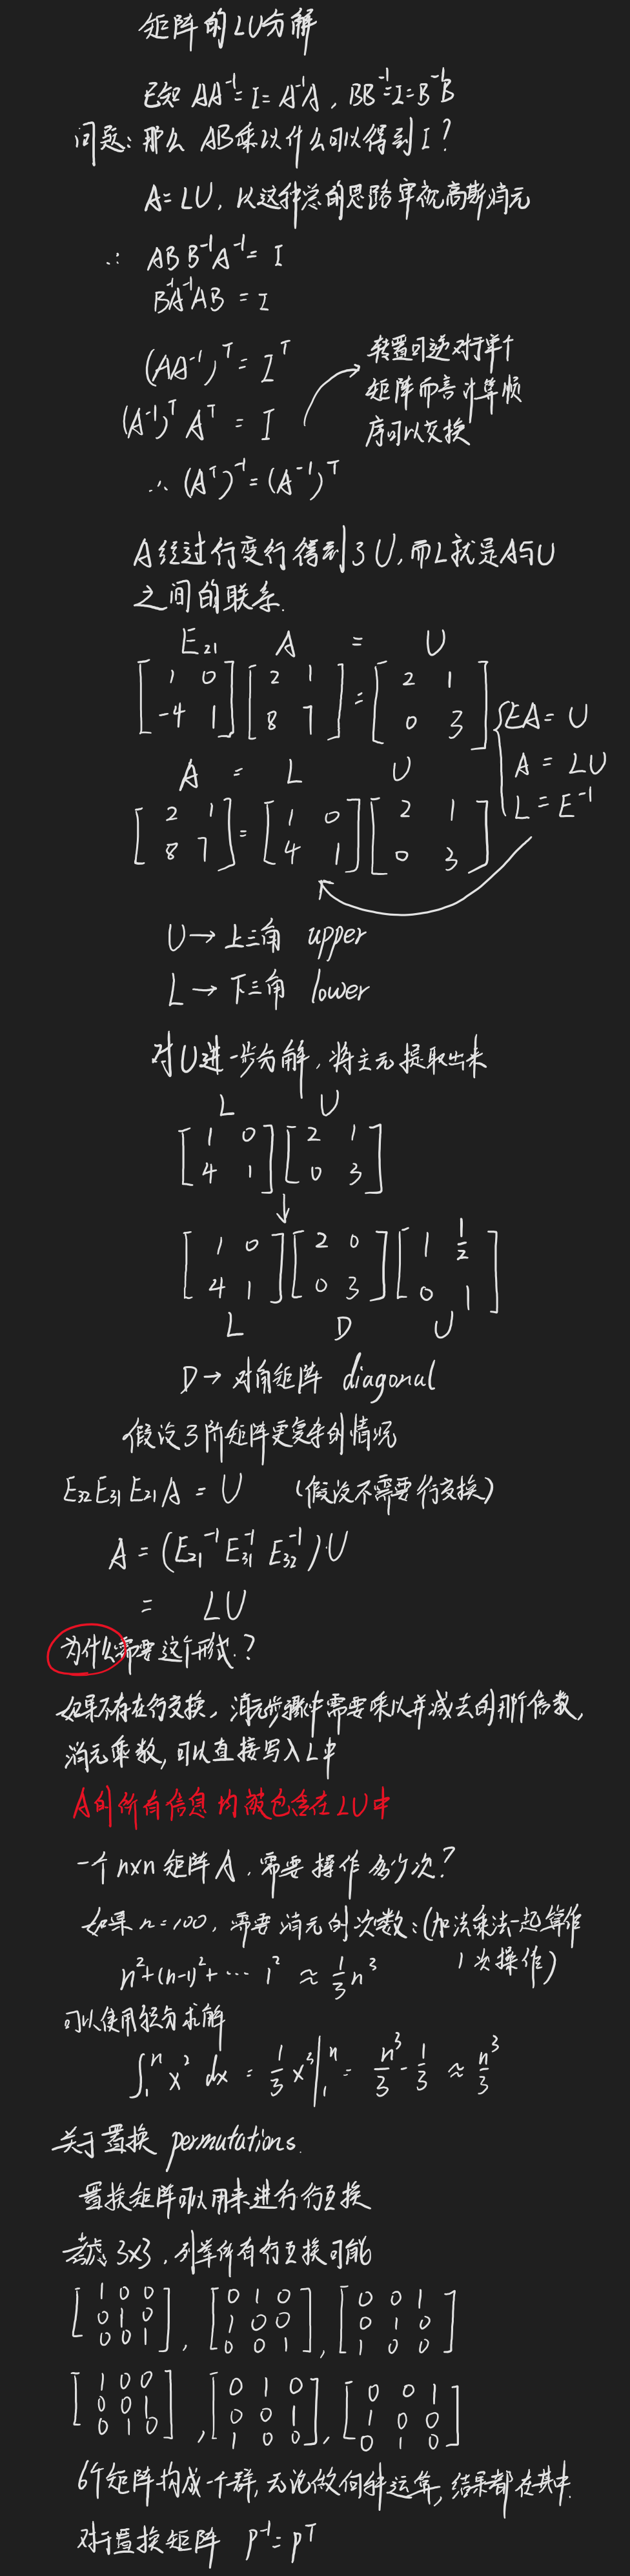 矩阵的LU分解
已知 AA⁻¹=I=A⁻¹A, BB⁻¹=I=B⁻¹B
问题: 那么 AB乘以什么可以得到I?
A=LU, 以这种总的思路审视高斯消元
∴ ABB⁻¹A⁻¹=I
B⁻¹A⁻¹AB=I
(AA⁻¹)ᵀ=Iᵀ
(A⁻¹)ᵀAᵀ=I
∴(Aᵀ)⁻¹=(A⁻¹)ᵀ
转置可逆对于单个
矩阵而言计算顺
序可以交换
A经过行变行得到了U,而L就是A与U
之间的联系.
E₂₁ A = U
[1 0; -4 1][2 1; 8 7]=[2 1; 0 3]
A = L U
[2 1; 8 7]=[1 0; 4 1][2 1; 0 3]
EA=U
A=LU
L=E⁻¹
U→上三角 upper
L→下三角 lower
对U进一步分解,将主元提取出来
L U
[1 0; 4 1][2 1; 0 3]
↓
[1 0; 4 1][2 0; 0 3][1 1/2; 0 1]
L D U
D→对角矩阵 diagonal
假设3阶矩阵更复杂的情况
E₃₂E₃₁E₂₁A=U (假设不需要行交换)
A=(E₂₁⁻¹E₃₁⁻¹E₃₂⁻¹)·U
= LU
为什么需要这个形式.?
如果不存在行交换, 消元步骤中需要乘以并减去的那个倍数,
消元乘数,可以直接写入L中
A的所有信息均被包含在LU中
一个n×n矩阵A,需要操作多少次?
如果n=100,需要消元的次数:(加法乘法一起算作
1次操作)
n²+(n-1)²+⋯ 1² ≈ 1/3 n³
可以使用积分求解
∫₁ⁿ x² dx = 1/3 x³|₁ⁿ = n³/3 - 1/3 ≈ n³/3
关于置换 permutations.
置换矩阵可以用来进行行互换
考虑3×3,列举所有行互换可能
[1 0 0; 0 1 0; 0 0 1], [0 1 0; 1 0 0; 0 0 1], [0 0 1; 0 1 0; 1 0 0]
[1 0 0; 0 0 1; 0 1 0], [0 1 0; 0 0 1; 1 0 0], [0 0 1; 1 0 0; 0 1 0]
6个矩阵构成一个群,无论做何种运算,结果都在其中.
对于置换矩阵 P⁻¹=Pᵀ